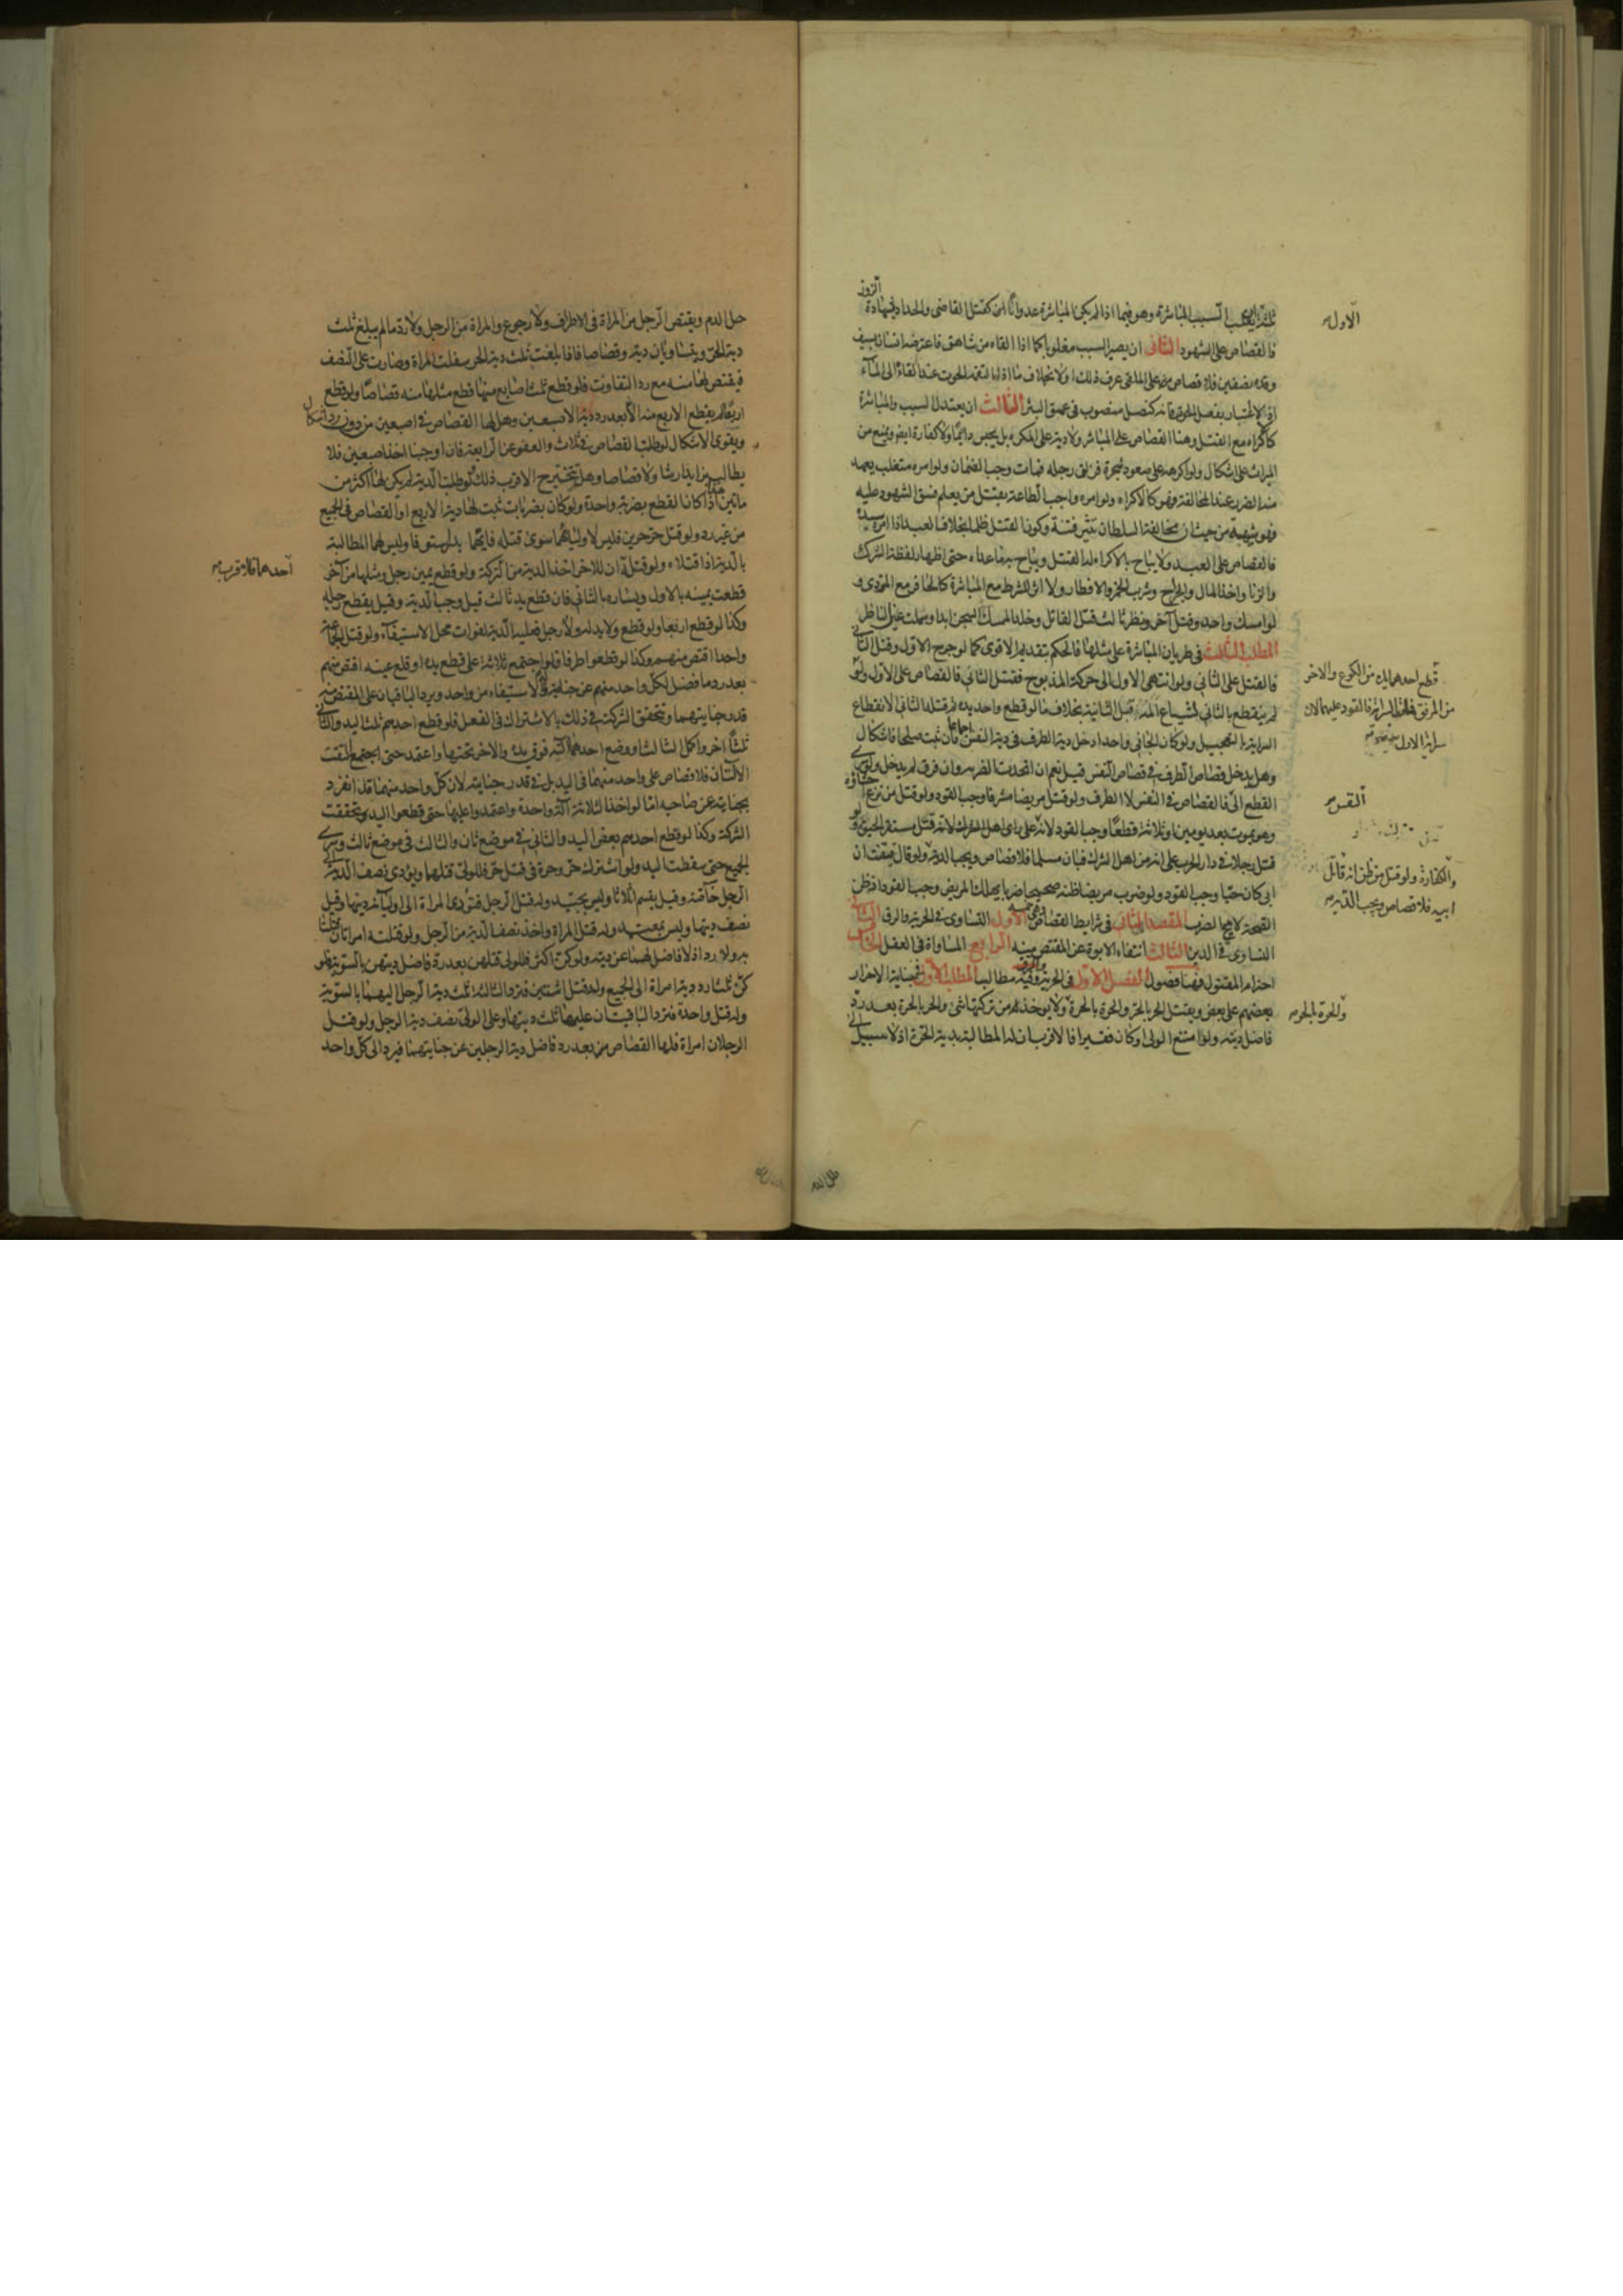 ثلثة ان يغلب السبب المباشرة وهو فيما اذا لم يكن المباشرة عدوانا كقتل القاضى والجلاد بشهادة
الزور
الاول
فالقصاص على الشهود الثانى ان يصير السبب مغلوبا كما اذا القاه من شاهق فاعترضه انسان بسيف
وقده نصفين فلا قصاص على الملقى عرف ذلك او لا بخلاف ما اذا التقمه الحوت عند القائه الى الماء
اذ لا اعتبار بفعل الحوت فانه كنصل منصوب فى عمق البئر الثالث ان يعتدل السبب والمباشرة
كالاكراه مع القتل وهنا القصاص على المباشر ولا دية على المكره بل يحبس دائما ولا كفارة ايضا ويمنع من
الميراث على اشكال ولو اكرهه على صعود شجرة فزلق رجله فمات وجب الضمان ولو امره متغلب يعهد
منه الضرر عند المخالفة فهو كالاكراه ولو امره واجب الطاعة بقتل من يعلم فسق الشهود عليه
فهو شبهة من حيث ان مخالفة السلطان تثير فتنة وكون القتل ظلما بخلاف العبد اذا امره سيده
فالقصاص على العبد ولا يباح بالاكراه القتل ويباح به ما عداه حتى اظهار لفظة الشرك
والزنا واخذ المال والجراح وشرب الخمر والافطار ولا اثر للشرط مع المباشرة كالحافر مع المردى و
لو امسك واحد وقتل آخر ونظر ثالث قتل القاتل وخلد الممسك السجن ابدا وسملت عين الناظر
المطلب الثالث فى طريان المباشرة على مثلها فالحكم بتقديم الاقوى كما لو جرح الاول وقتل الثانى
فالقتل على الثانى ولو انتهى الاول الى حركة المذبوح فقتل الثانى فالقصاص على الاول ولو
قطع احدهما يده من الكوع والاخر
من المرفق فالقود عليهما لان
سراية الاول
لم ينقطع بالثانى لشياع المه قبل الثانية بخلاف ما لو قطع واحد يده ثم قتله الثانى لانقطاع
السراية بالتعجيل ولو كان الجانى واحدا دخل دية الطرف فى دية النفس اجماعا فان ثبت صلحا فاشكال
وهل يدخل قصاص الطرف فى قصاص النفس قيل نعم ان اتحدت الضربة وان فرق لم يدخل ولو سرى
القطع الى فالقصاص فى النفس لا الطرف ولو قتل مريضا مشرفا وجب القود ولو قتل من نزع
النفس
وهو يموت بعد يومين او ثلاثة قطعا وجب القود لانه على راى اهل لانه قتل مستقر الحيوة و
قتل رجلا فى دار الحرب على انه من اهل الشرك فبان مسلما فلا قصاص ويجب الدية ولو قال تيقنت ان
والكفارة ولو قتل من ظن انه قاتل
ابيه فلا قصاص ويجب الدية
ابى كان حيا وجب القود ولو ضرب مريضا ظنه صحيحا ضربا يهلك المريض وجب القود اذ ظن
الصحة لا يبيح الضرب المقصد الثانى فى شرايط القصاص وهى خمسة الاول التساوى فى الحرية والرق الثانى
التساوى فى الدين الثالث انتفاء الابوة عن المقتص منه الرابع المساواة فى العقل الخامس
احترام المقتول فهنا فصول الفصل الاول فى الحرية والرق وفيه مطالب المطلب الاول فى جناية الاحرار
بعضهم على بعض ويقتل الحر بالحر والحرة بالحرة ولا يؤخذ من تركتها شئ والحر بالحرة بعد رد
والحرة بالحر
فاضل ديته ولو امتنع الولى او كان فقيرا فالاقرب ان له المطالبة بدية الحرة اذ لا سبيل الى
حل الدم ويقتص الرجل من المراة فى الاطراف ولا رجوع والمراة من الرجل ولا رد ما لم يبلغ ثلث
دية الحر ويتساويان دية وقصاصا فاذا بلغت ثلث دية الحر سفلت المراة وصارت على النصف
فيقتص لها منه مع رد التفاوت فلو قطع ثلث اصابع منها قطع مثلها منه قصاصا ولو قطع
اربعا لم يقطع الاربع منه الا بعد رد دية الاصبعين وهل لها القصاص فى اصبعين من دون رد اشكال
ويقوى الاشكال لو طلبت القصاص فى ثلاث والعفو عن الرابعة فان اوجبنا اخذ اصبعين فلا
يطالب بزايد ارشا ولا قصاصا وهل تتخير الاقرب ذلك لو طلبت الدية لم يكن لها اكثر من
ماتين هذا اذا كان القطع بضربة واحدة ولو كان بضربات ثبت لها دية الاربع او القصاص فى الجميع
من غير رد ولو قتل حر حرين فليس لاوليائهما سوى قتله فايهما بدر استوفا وليس لهما المطالبة
بالدية اذا قتلاه ولو قتله ان للاخر اخذ الدية من التركة ولو قطع يمين رجل ومثلها من آخر
احدهما فالاقرب
قطعت يمينه بالاول ويساره بالثانى فان قطع يد ثالث قيل وجب الدية وقيل يقطع رجله
وكذا لو قطع اربعا ولو قطع ولا يد له ولا رجل فعليه الدية لفوات محل الاستيفاء ولو قتل الجماعة
واحدا اقتص منهم وكذا لو قطعوا طرفا فلو اجتمع ثلاثة على قطع يده او قلع عينه اقتص منهم
بعد رد ما فضل لكل واحد منهم عن جنايته وله الاستيفاء من واحد ويرد الباقيان على المقتص منه
قدر جنايتهما وتتحقق الشركة فى ذلك بالاشتراك فى الفعل فلو قطع احدهم ثلث اليد والثانى
ثلثا اخر واكمل الثالث او وضع احدهما آلته فوق يده والاخر تحتها واعتمد حتى اجتمع التقت
الآلتان فلا قصاص على واحد منهما فى اليد بل فى قدر جنايته لان كل واحد منهما قد انفرد
بجناية عن صاحبه اما لو اخذ الثلاثة آلة واحدة واعتمدوا عليها حتى قطعوا اليد تحققت
الشركة وكذا لو قطع احدهم بعض اليد والثانى فى موضع ثان والثالث فى موضع ثالث وسرى
الجميع حتى سقطت اليد ولو اشترك حر وحرة فى قتل حر فللولى قتلهما ويؤدى نصف الدية الى
الرجل خاصة وقيل يقسم اثلاثا وليس بجيد وله قتل الرجل فتؤدى المراة الى اوليائه ديتها وقيل
نصف ديتها وليس بمعتمد وله قتل المراة واخذ نصف الدية من الرجل ولو قتلته امراتان قتلتا
به ولا رد اذ لا فاضل لهما عن ديته ولو كن اكثر فللولى قتلهن بعد رد فاضل ديتهن بالسوية فلو
كن ثلثا رد دية امراة الى الجميع وله قتل اثنتين فترد الثالثة ثلث دية الرجل اليهما بالسوية
وله قتل واحدة فترد الباقيتان عليها ثلث ديتها وعلى الولى نصف دية الرجل ولو قتل
الرجلان امراة فلها القصاص من بعد رد فاضل دية الرجلين عن جنايتهما فيرد الى كل واحد